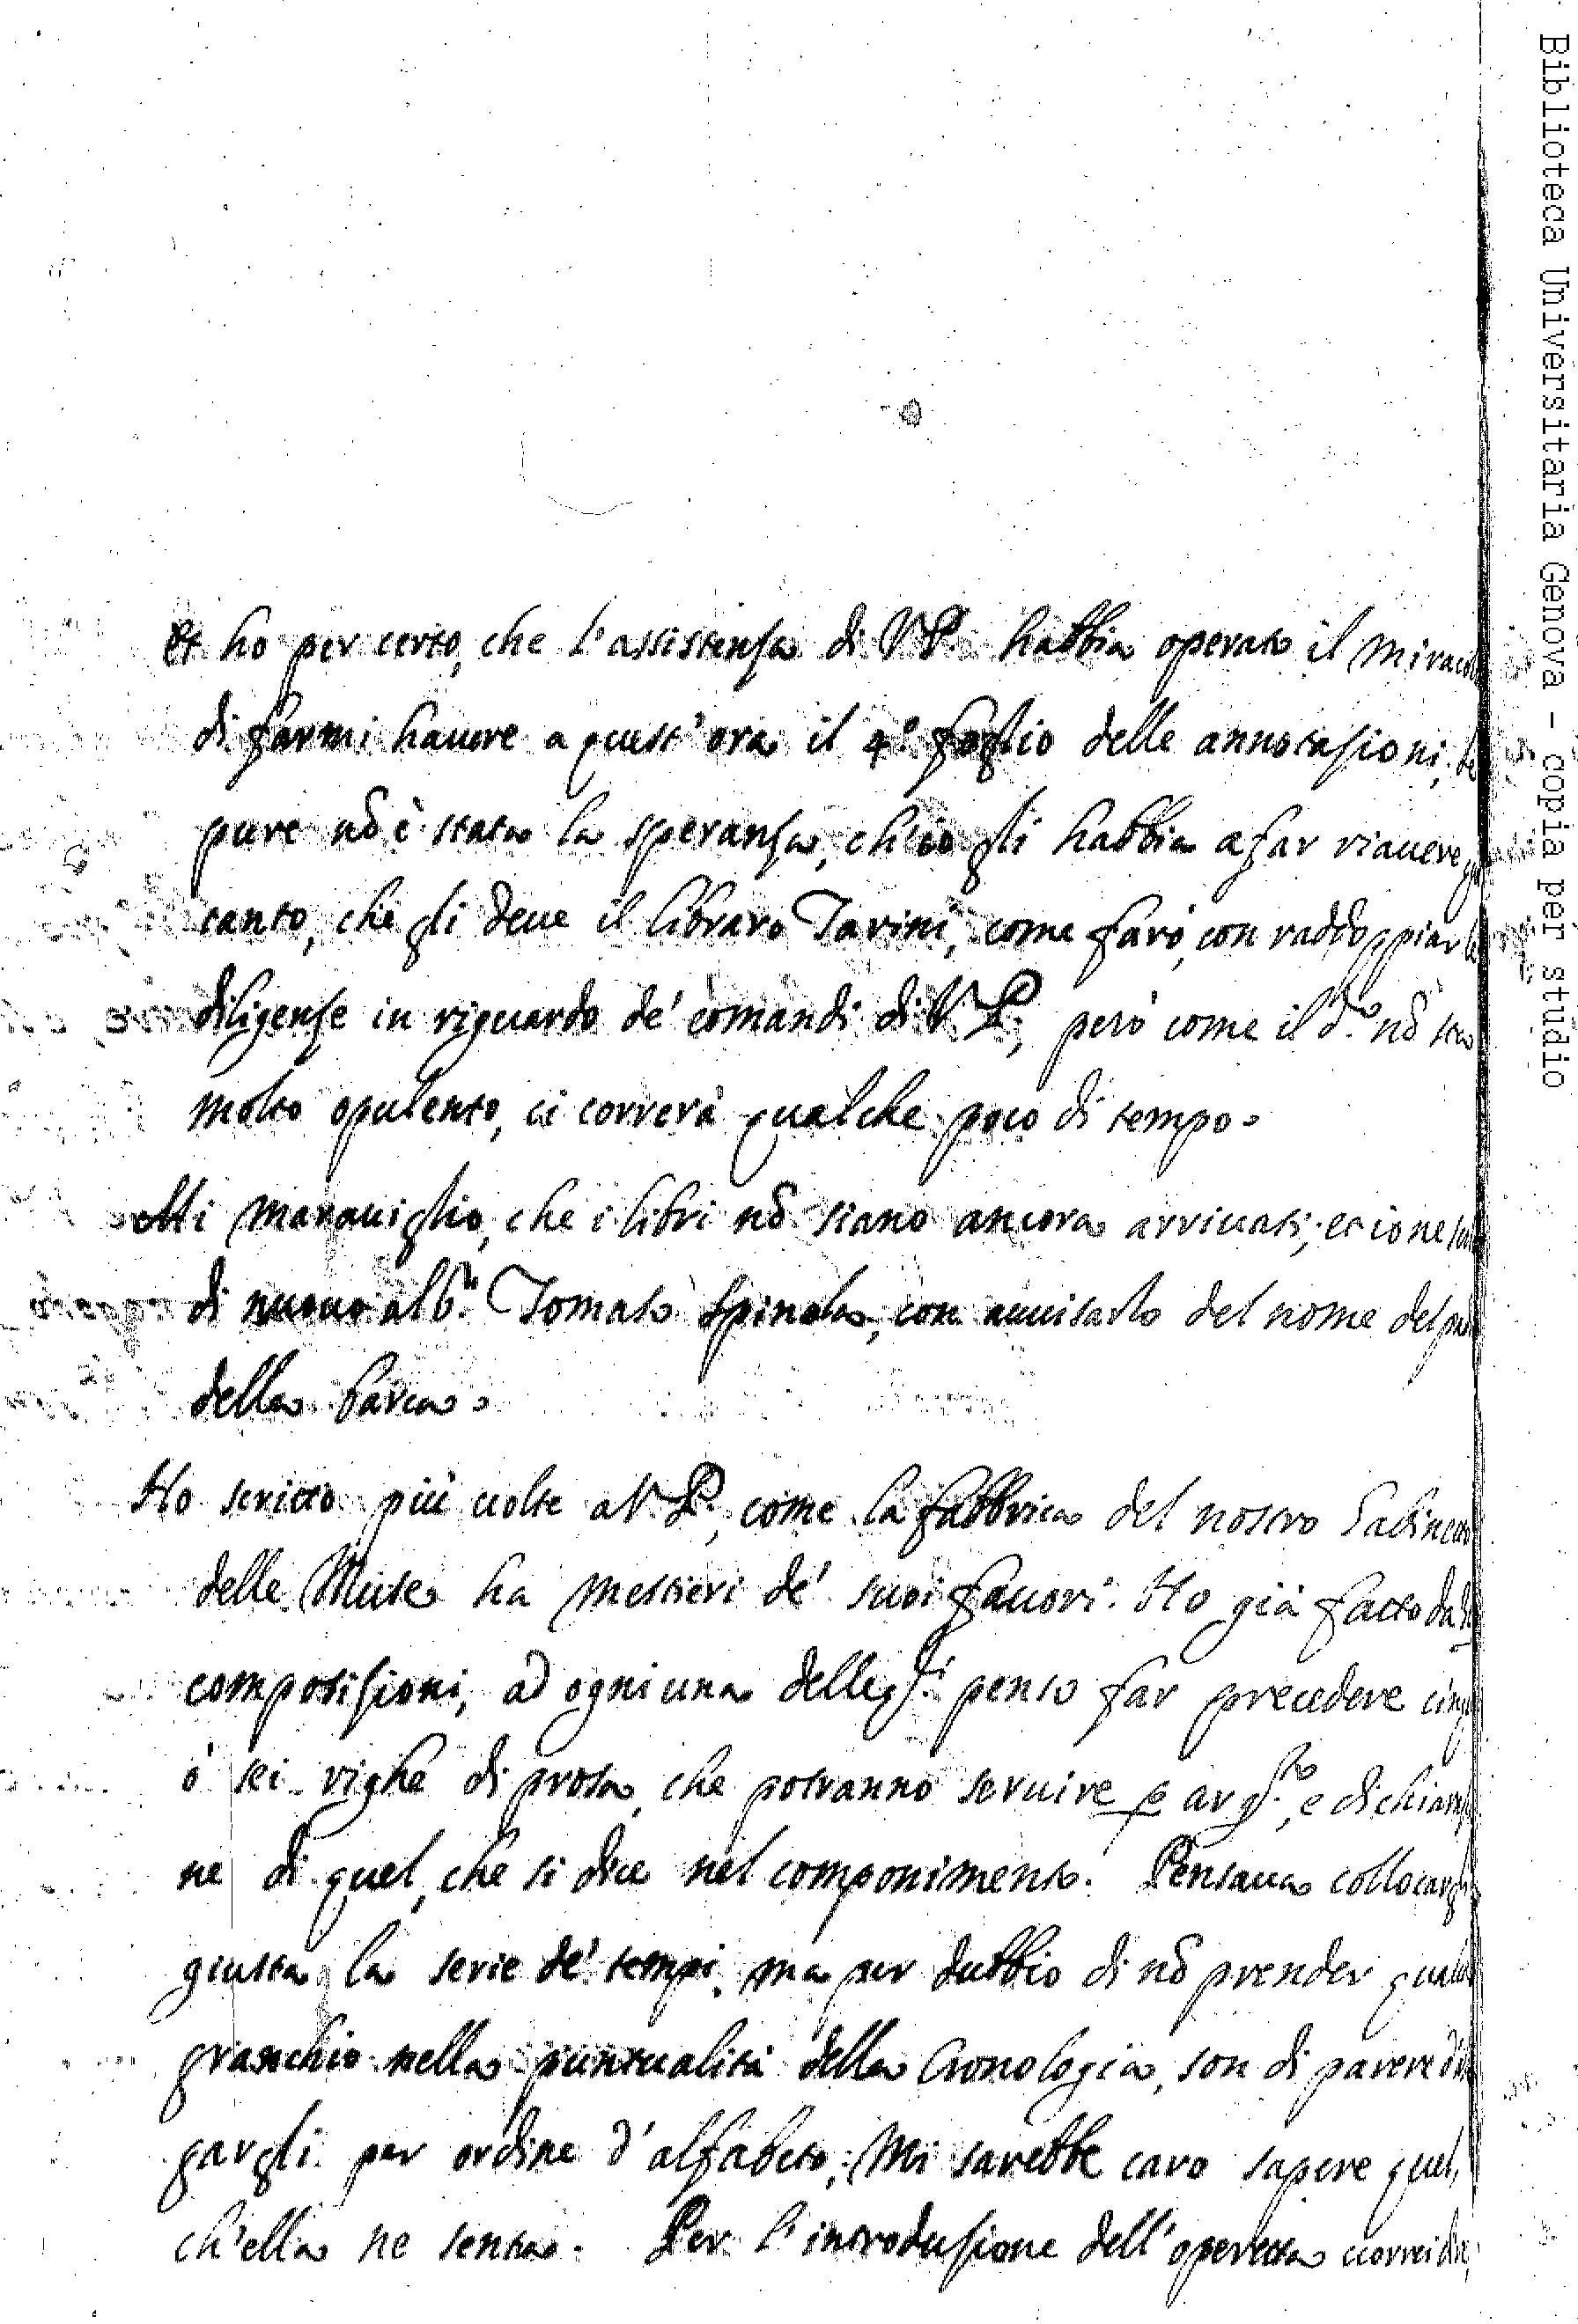 Et ho per certo, che l'assistenza di V.P. habbia operato il mirac
di farmi hauere a quest'ora il 4.º foglio delle annotazioni, se
pure nõ è stata la speranza, ch'io gli habbia a far riauere
tanto, che gli deue il libraro Tarini, come farò, con raddoppiar le
diligenze in riguardo de' comandi di V.P., però come il d.º nõ sta
molto opulento, ci correrà qualche poco di tempo.
Mi marauiglio, che i libri nõ siano ancora arriuati, et io ne
di nuouo al Tomaso Spinola, con auuisarlo del nome del
della barca.
Ho scritto più uolte a V.P., come la fabbrica del nostro Gabinetto
delle Muse ha mestieri de' suoi fauori. Ho già fatto da
composizioni, ad ogniuna delle q.li penso far precedere cinq
ò sei righe di prosa, che potranno seruire p arg.to, e dichiaraz
ne di quel, che si dice nel componimento. Pensaua collocargli
giusta la serie de' tempi, ma per dubbio di nõ prender qualche
granchio nella puntualità della Cronologia, son di parere di
gargli per ordine d'alfabeto; Mi sarebbe caro sapere quel,
ch'ella ne senta. Per l'introduzione dell'operetta uorrei dire,
Biblioteca Universitaria Genova - copia per studio